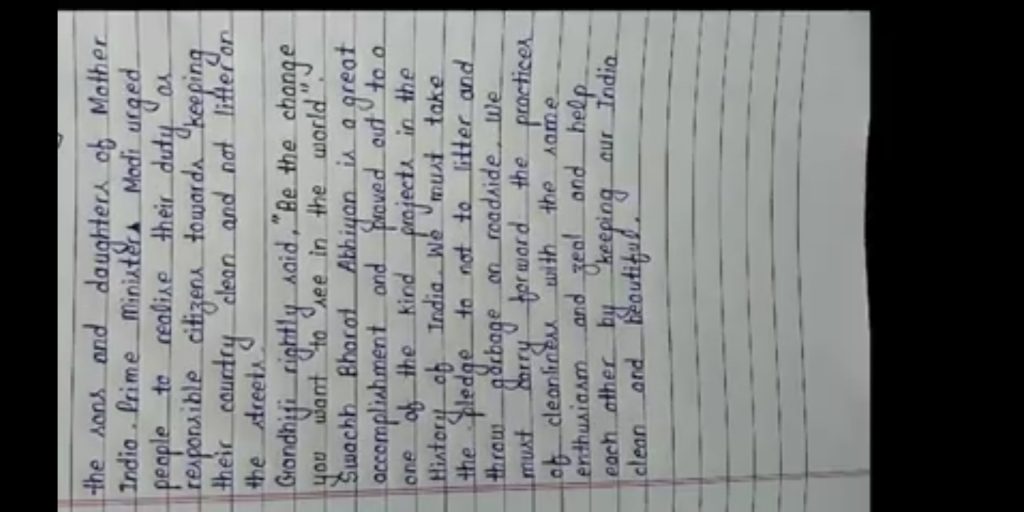 the sons and daughters of Mother
India. Prime Ministers Modi urged
people to realise their duty as
responsible citizens towards keeping
their country clean and not litter on
the streets.
Gandhiji rightly said, "Be the change
you want to see in the world".
Swachh Bharat Abhiyan is a great
accomplishment and proved out to a
one of the kind projects in the
History of India. We must take
the pledge to not to litter and
throw garbage on roadside. We
must carry forward the practices
of cleanliness with the same
enthusiasm and zeal and help
each other by keeping our India
clean and beautiful.